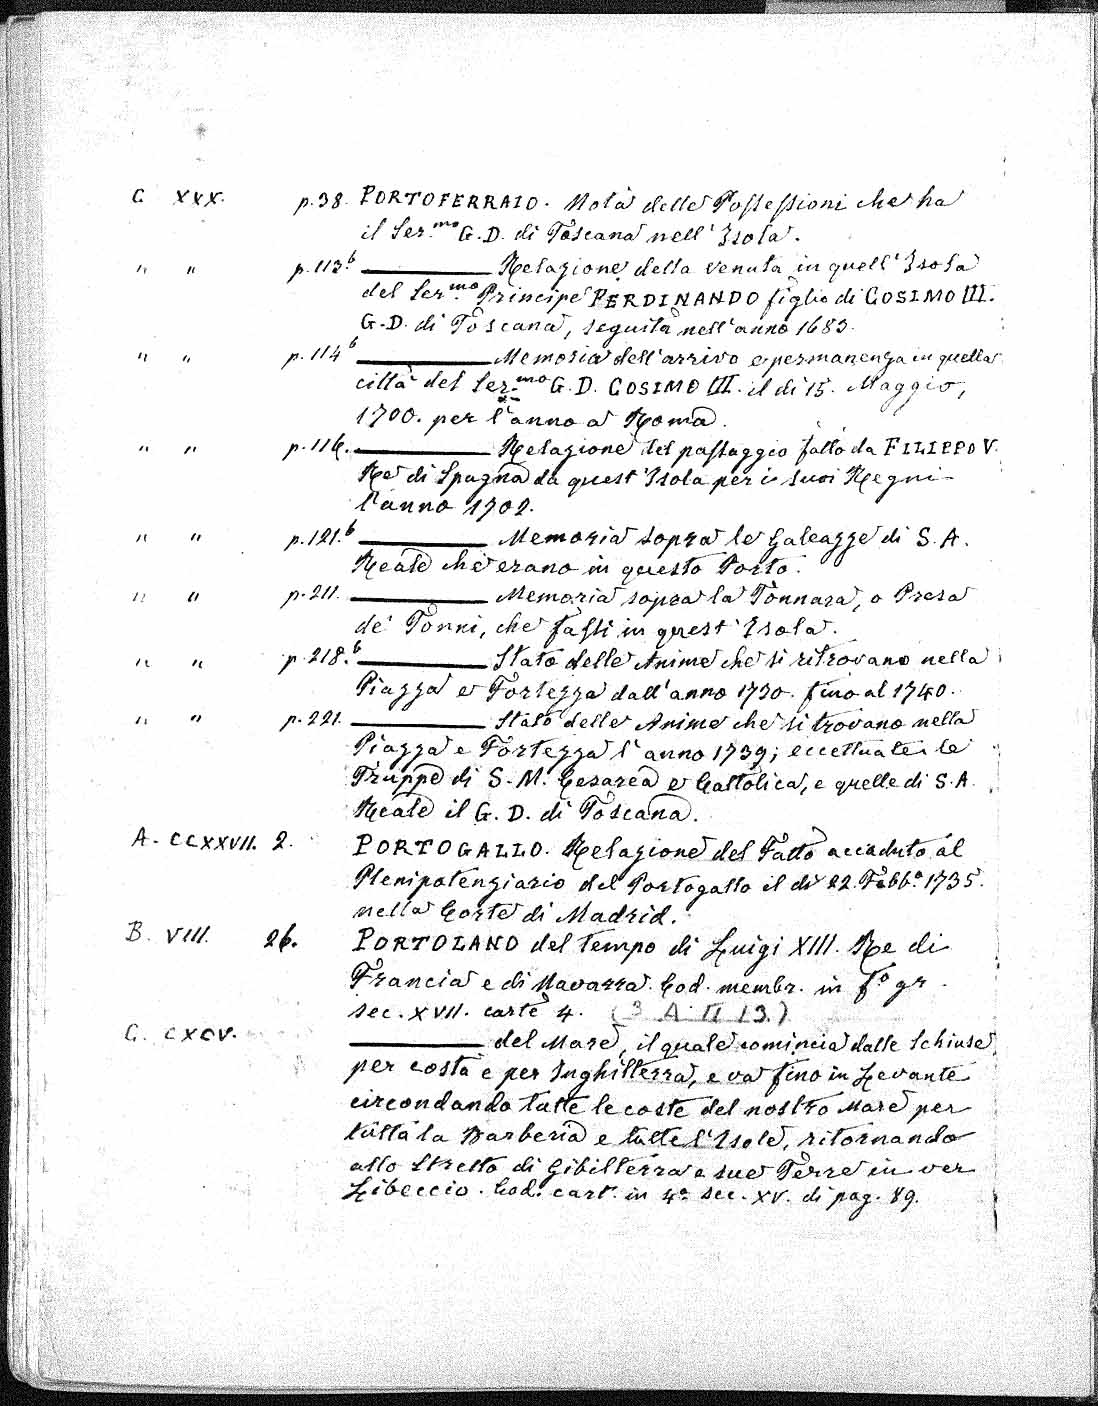 C XXX. p.38. PORTOFERRAIO. Nota delle Possessioni che ha
il Ser.mo G.D. di Toscana nell'Isola.
" " p.113.b ——— Relazione della venuta in quell'Isola
del Ser.mo Principe FERDINANDO figlio di COSIMO III.
G.D. di Toscana, seguita nell'anno 1683.
" " p.114.b ——— Memoria dell'arrivo e permanenza in quella
città del Ser.mo G.D. COSIMO III. il dì 15. Maggio,
1700. per l'anno a Roma.
" " p.116. ——— Relazione del passaggio fatto da FILIPPO V.
Re di Spagna da quest'Isola per i suoi Regni
l'anno 1702.
" " p.121.b ——— Memoria sopra le Galeazze di S.A.
Reale che erano in questo Porto.
" " p.211. ——— Memoria sopra la Tonnara, o Presa
de' Tonni, che fassi in quest'Isola.
" " p.218.b ——— Stato delle Anime che si ritrovano nella
Piazza e Fortezza dall'anno 1730. fino al 1740.
" " p.221. ——— Stato delle Anime che si trovano nella
Piazza e Fortezza l'anno 1739; eccettuate le
Truppe di S.M. Cesarea e Cattolica, e quelle di S.A.
Reale il G.D. di Toscana.
A. CCXXVII. 2. PORTOGALLO. Relazione del Fatto accaduto al
Plenipotenziario del Portogallo il dì 22. Febb.o 1735.
nella Corte di Madrid.
B. VIII. 26. PORTOLANO del tempo di Luigi XIII. Re di
Francia e di Navarra. Cod. membr. in f.o gr.
sec. XVII. carte 4. (3 A II 13.)
C. CXCV. ——— del Mare, il quale comincia dalle Schiuse
per costa e per Inghilterra, e va fino in Levante
circondando tutte le coste del nostro Mare per
tutta la Barberia e tutte l'Isole, ritornando
allo Stretto di Gibilterra e sue Terre in ver
Libeccio. Cod. cart. in 4.o sec. XV. di pag. 89.